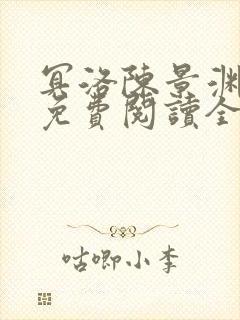 冥洛陳景淵
免費閱讀全
咕唧小李